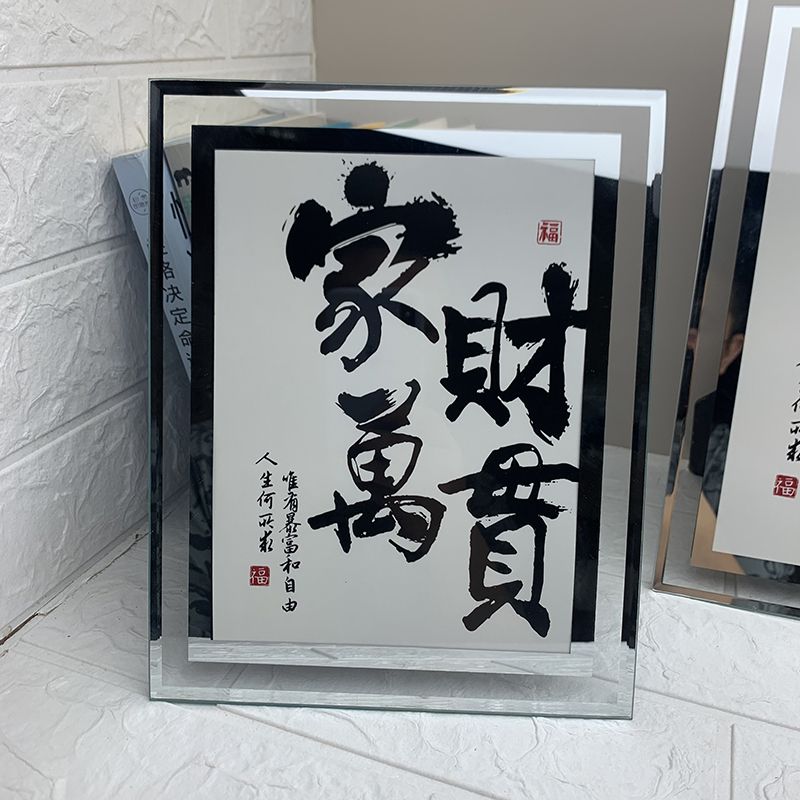 家財
萬貫
福
人生何所求
唯有暴富和自由
福
格决定命
何所求
福